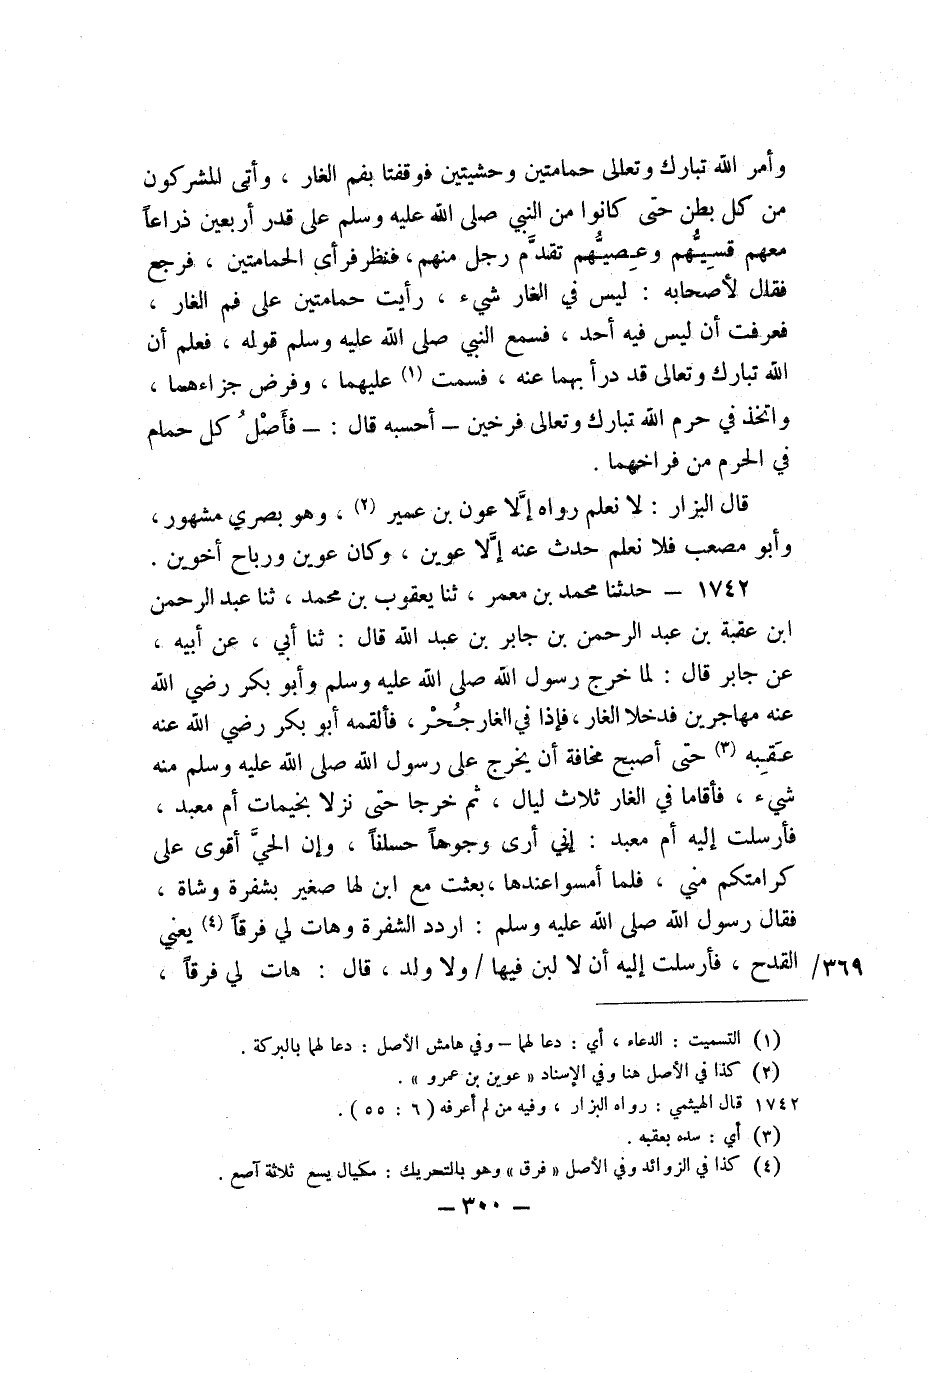 وأمر الله تبارك وتعالى حمامتين وحشيتين فوقفتا بفم الغار ، وأتى المشركون
من كل بطن حتى كانوا من النبي صلى الله عليه وسلم على قدر أربعين ذراعاً
معهم قسِيُّهم وعِصِيُّهم تقدَّم رجل منهم، فنظر فرأى الحمامتين ، فرجع
فقال لأصحابه : ليس في الغار شيء ، رأيت حمامتين على فم الغار ،
فعرفت أن ليس فيه أحد ، فسمع النبي صلى الله عليه وسلم قوله ، فعلم أن
الله تبارك وتعالى قد درأ بهما عنه ، فسمت (١) عليهما ، وفرض جزاءهما ،
واتخذ في حرم الله تبارك وتعالى فرخين – أحسبه قال : – فأَصْلُ كل حمام
في الحرم من فراخهما .
قال البزار : لا نعلم رواه إلَّا عون بن عمير (٢) ، وهو بصري مشهور ،
وأبو مصعب فلا نعلم حدث عنه إلَّا عوين ، وكان عوين ورباح أخوين .
١٧٤٢ – حدثنا محمد بن معمر ، ثنا يعقوب بن محمد ، ثنا عبد الرحمن
ابن عقبة بن عبد الرحمن بن جابر بن عبد الله قال : ثنا أبي ، عن أبيه ،
عن جابر قال : لما خرج رسول الله صلى الله عليه وسلم وأبو بكر رضي الله
عنه مهاجرين فدخلا الغار ، فإذا في الغار جُحْر ، فألقمه أبو بكر رضي الله عنه
عَقِبه (٣) حتى أصبح مخافة أن يخرج على رسول الله صلى الله عليه وسلم منه
شيء ، فأقاما في الغار ثلاث ليال ، ثم خرجا حتى نزلا بخيمات أم معبد ،
فأرسلت إليه أم معبد : إني أرى وجوهاً حسلفاً ، وإن الحيَّ أقوى على
كرامتكم مني ، فلما أمسوا عندها ، بعثت مع ابن لها صغير بشفرة وشاة ،
فقال رسول الله صلى الله عليه وسلم : اردد الشفرة وهات لي فرقاً (٤) يعني
القدح ، فأرسلت إليه أن لا لبن فيها / ولا ولد ، قال : هات لي فرقاً ، /٣٦٩
(١) التسميت : الدعاء ، أي : دعا لهما – وفي هامش الأصل : دعا لهما بالبركة .
(٢) كذا في الأصل هنا وفي الإسناد « عوين بن عمرو » .
١٧٤٢ قال الهيثمي : رواه البزار ، وفيه من لم أعرفه ( ٦ : ٥٥ ) .
(٣) أي : سده بعقبه .
(٤) كذا في الزوائد وفي الأصل « فرق » وهو بالتحريك : مكيال يسع ثلاثة آصع .
– ٣٠٠ –